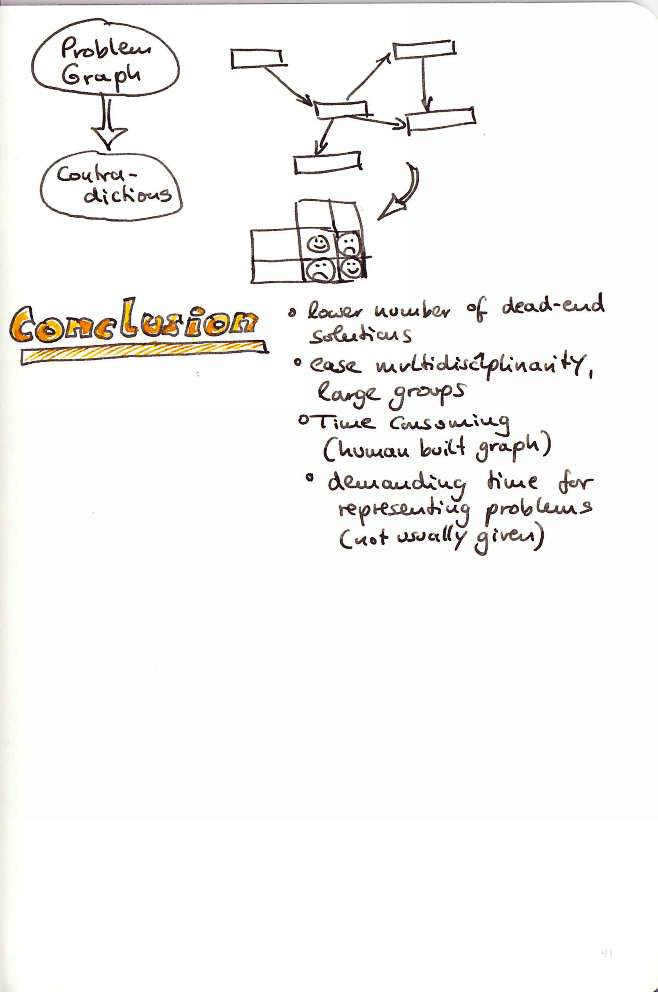 Problem
Graph
Contra-
dictions
Conclusion
lower number of dead-end
solutions
ease multidisciplinarity,
large groups
Time consuming
(human built graph)
demanding time for
representing problems
(not usually given)
91